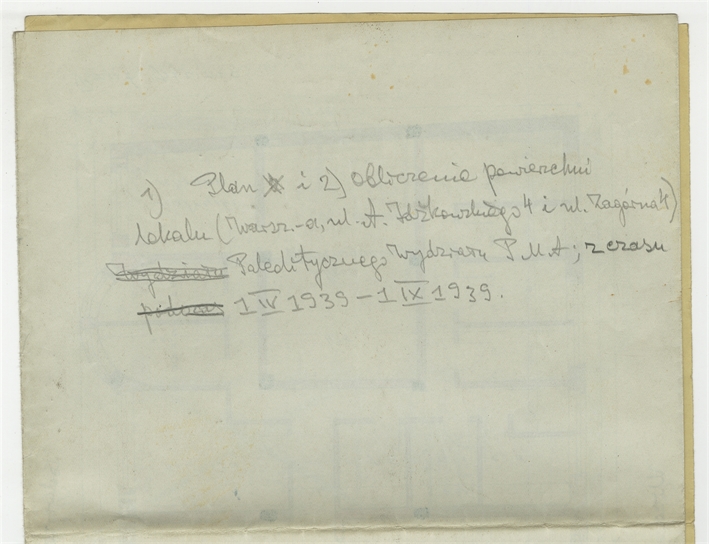 1) Plan i 2) obliczenie powierzchni
lokalu (Warsz.-a, ul. A. Idźkowskiego 4 i ul. Zagórna 1)
Paleolitycznego Wydziału P.M.A; z czasu
podczas 1 IV 1939 – 1 IX 1939.